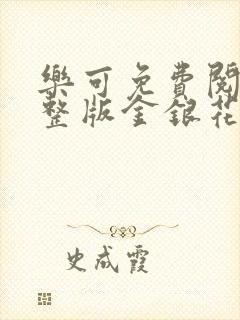 樂可免費閱
整版金銀花
史成霞